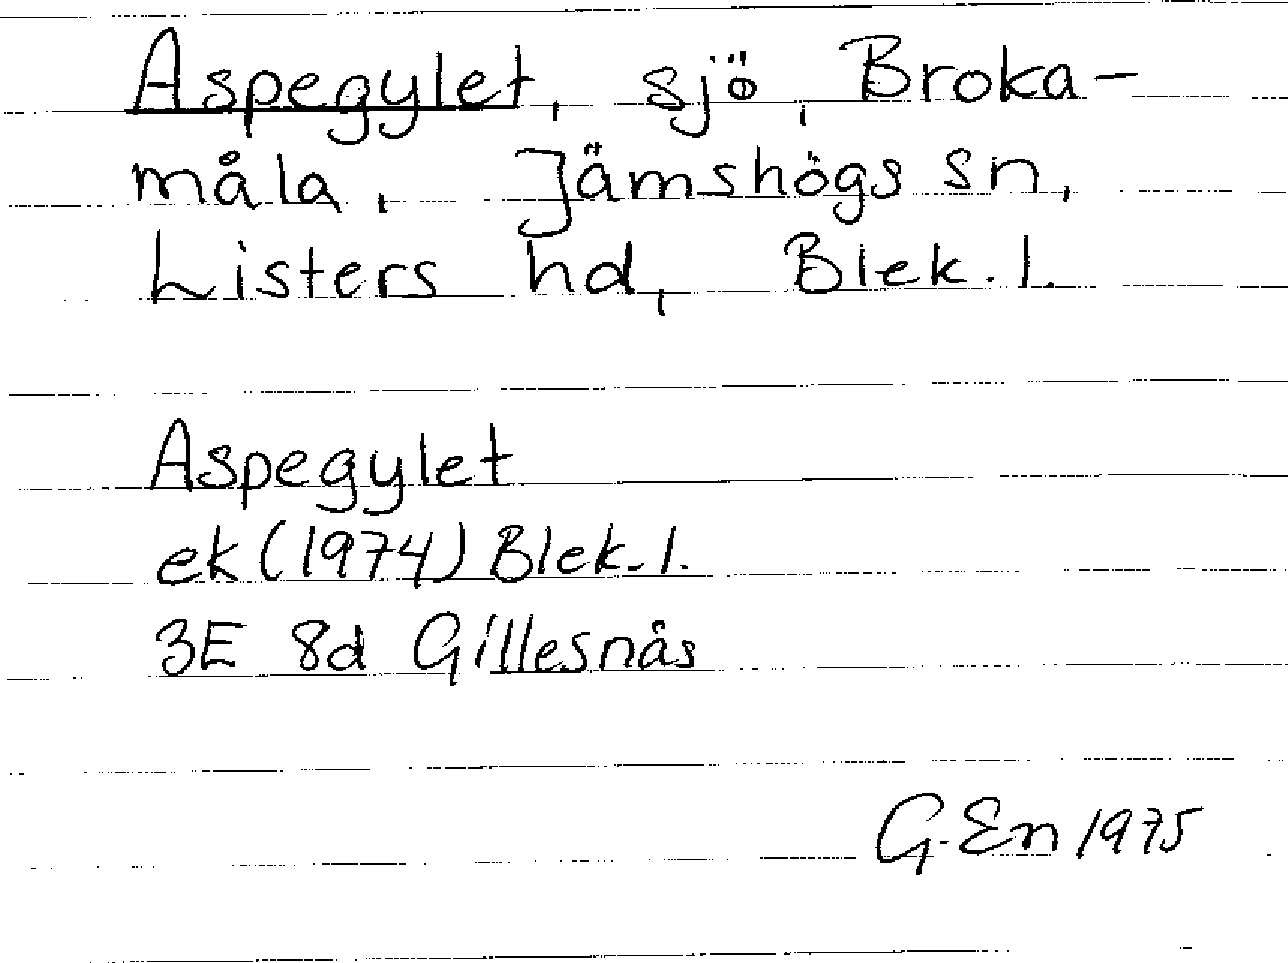 Aspegylet, sjö, Broka-
måla, Jämshögs sn,
Listers hd, Blek. l.
Aspegylet
ek (1974) Blek. l.
3E 8d Gillesnäs
G. En 1975